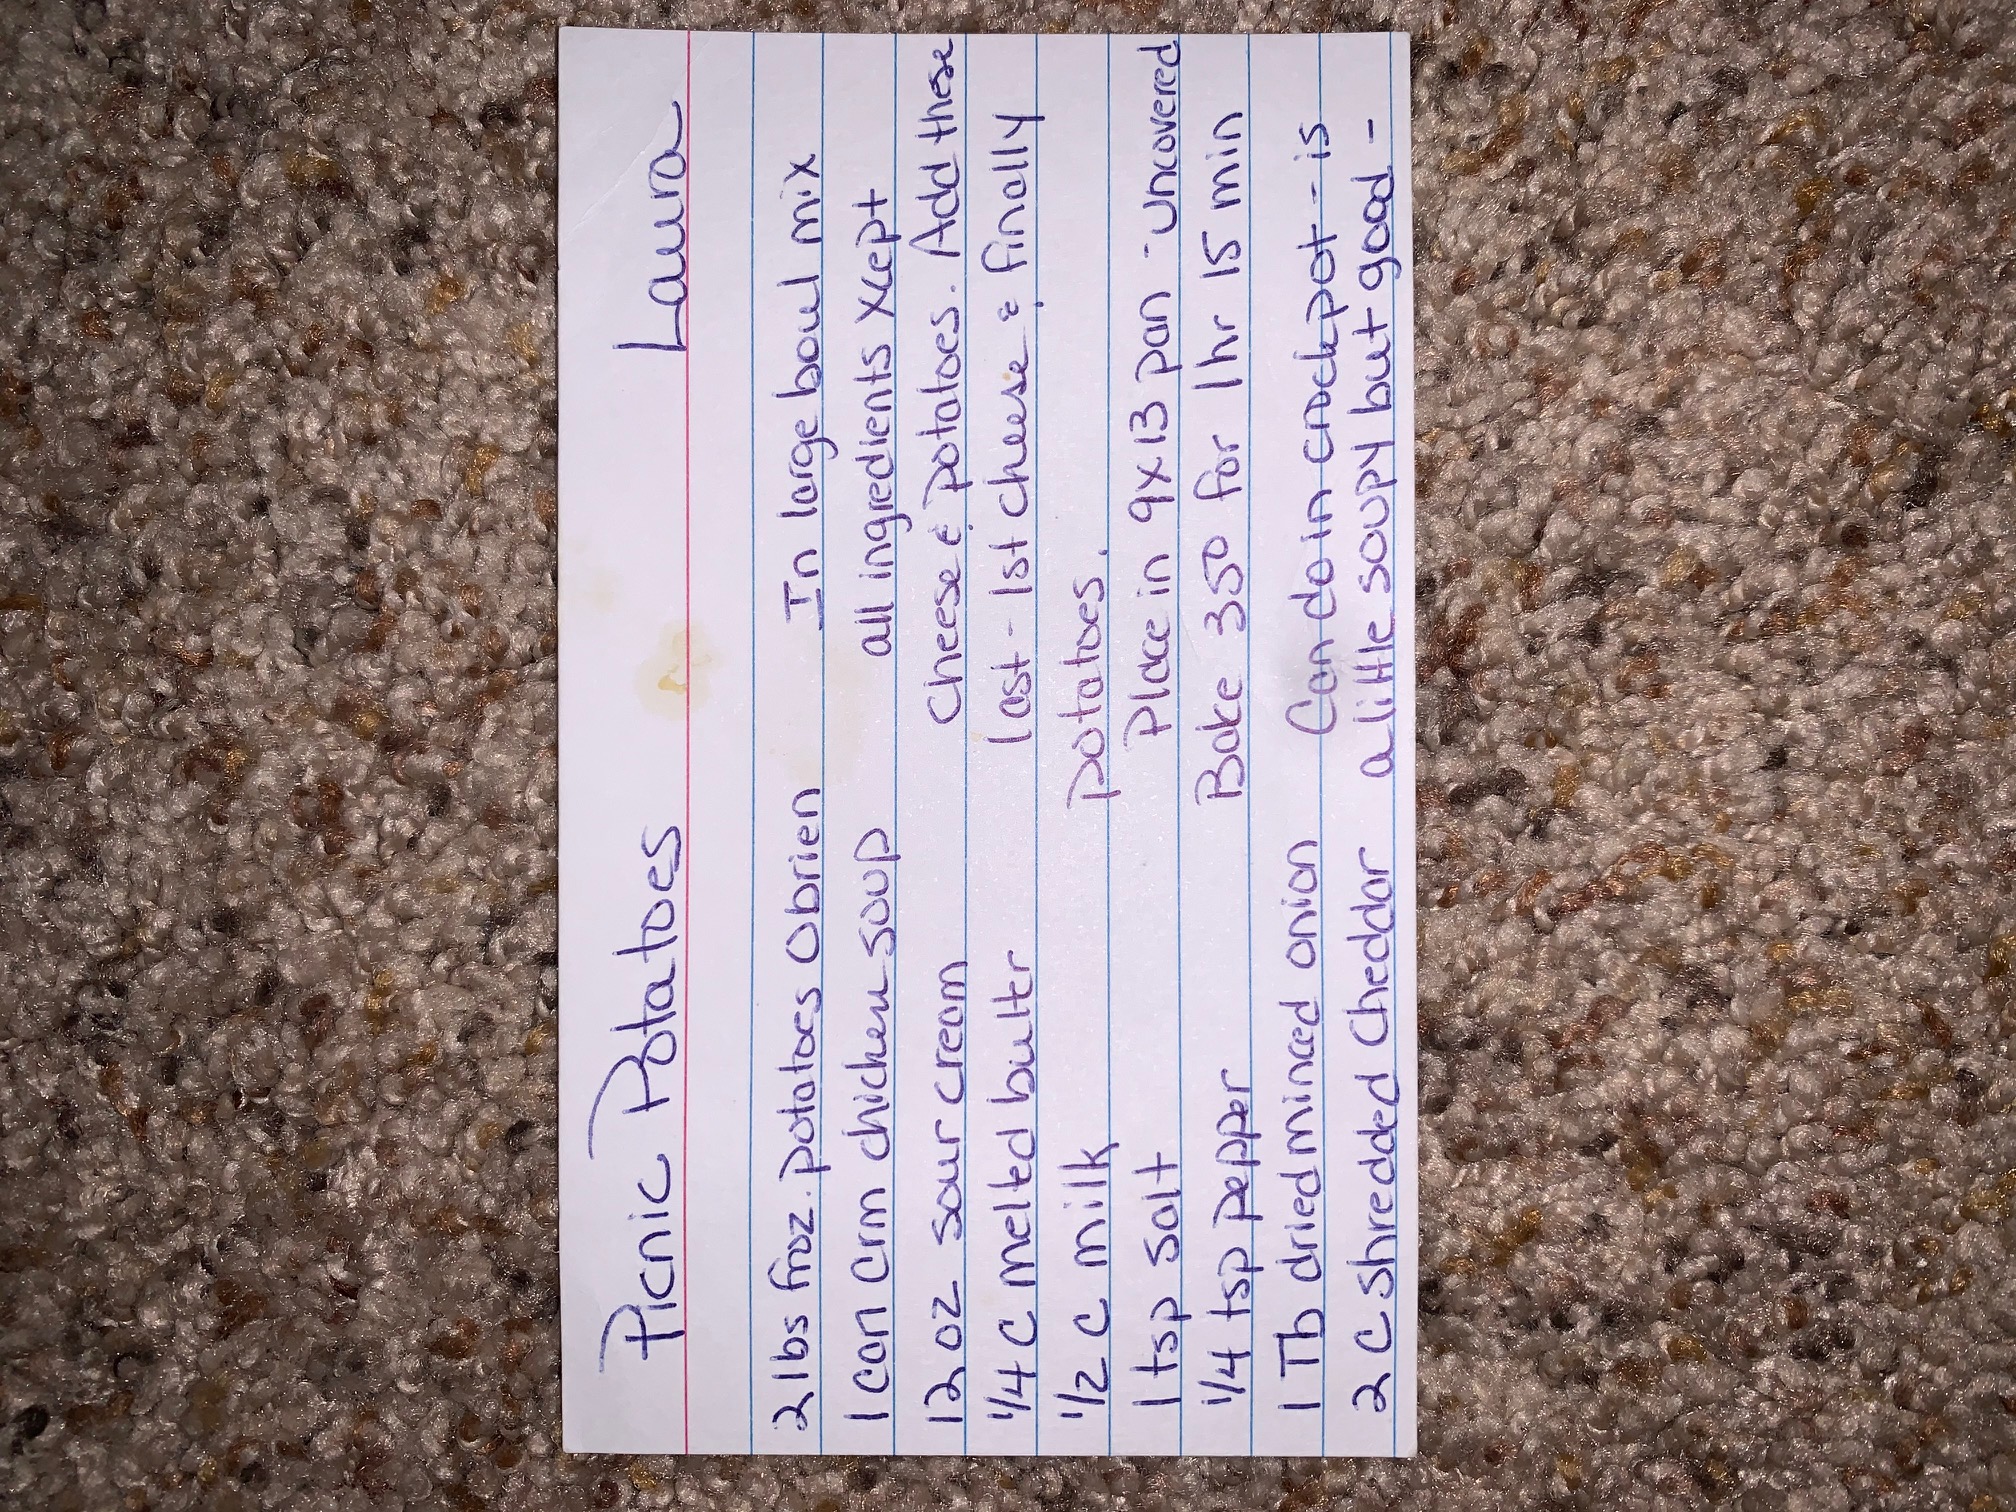 Picnic Potatoes Laura
2 lbs froz. potatoes Obrien
1 can crm chicken soup
12 oz sour cream
1/4 C melted buttr
1/2 C milk
1 tsp salt
1/4 tsp pepper
1 Tb dried minced onion
2 C shredded Cheddar
In large bowl mix
all ingredients xcept
cheese & potatoes. Add these
last - 1st cheese & finally
potatoes.
Place in 9x13 pan - uncovered
Bake 350 for 1 hr 15 min
Can do in crockpot - is
a little soupy but good -